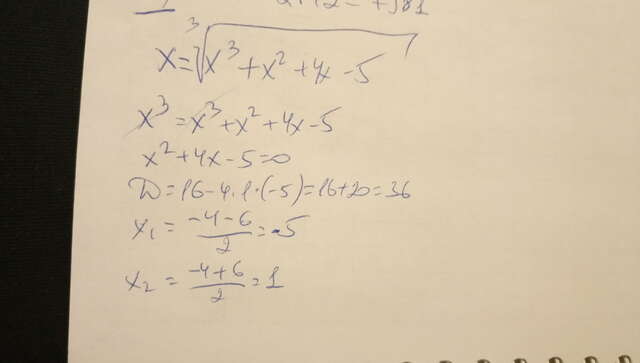 x=³√x³+x²+4x-5
x³=x³+x²+4x-5
x²+4x-5=0
D=16-4·1·(-5)=16+20=36
x₁=(-4-6)/2=-5
x₂=(-4+6)/2=1